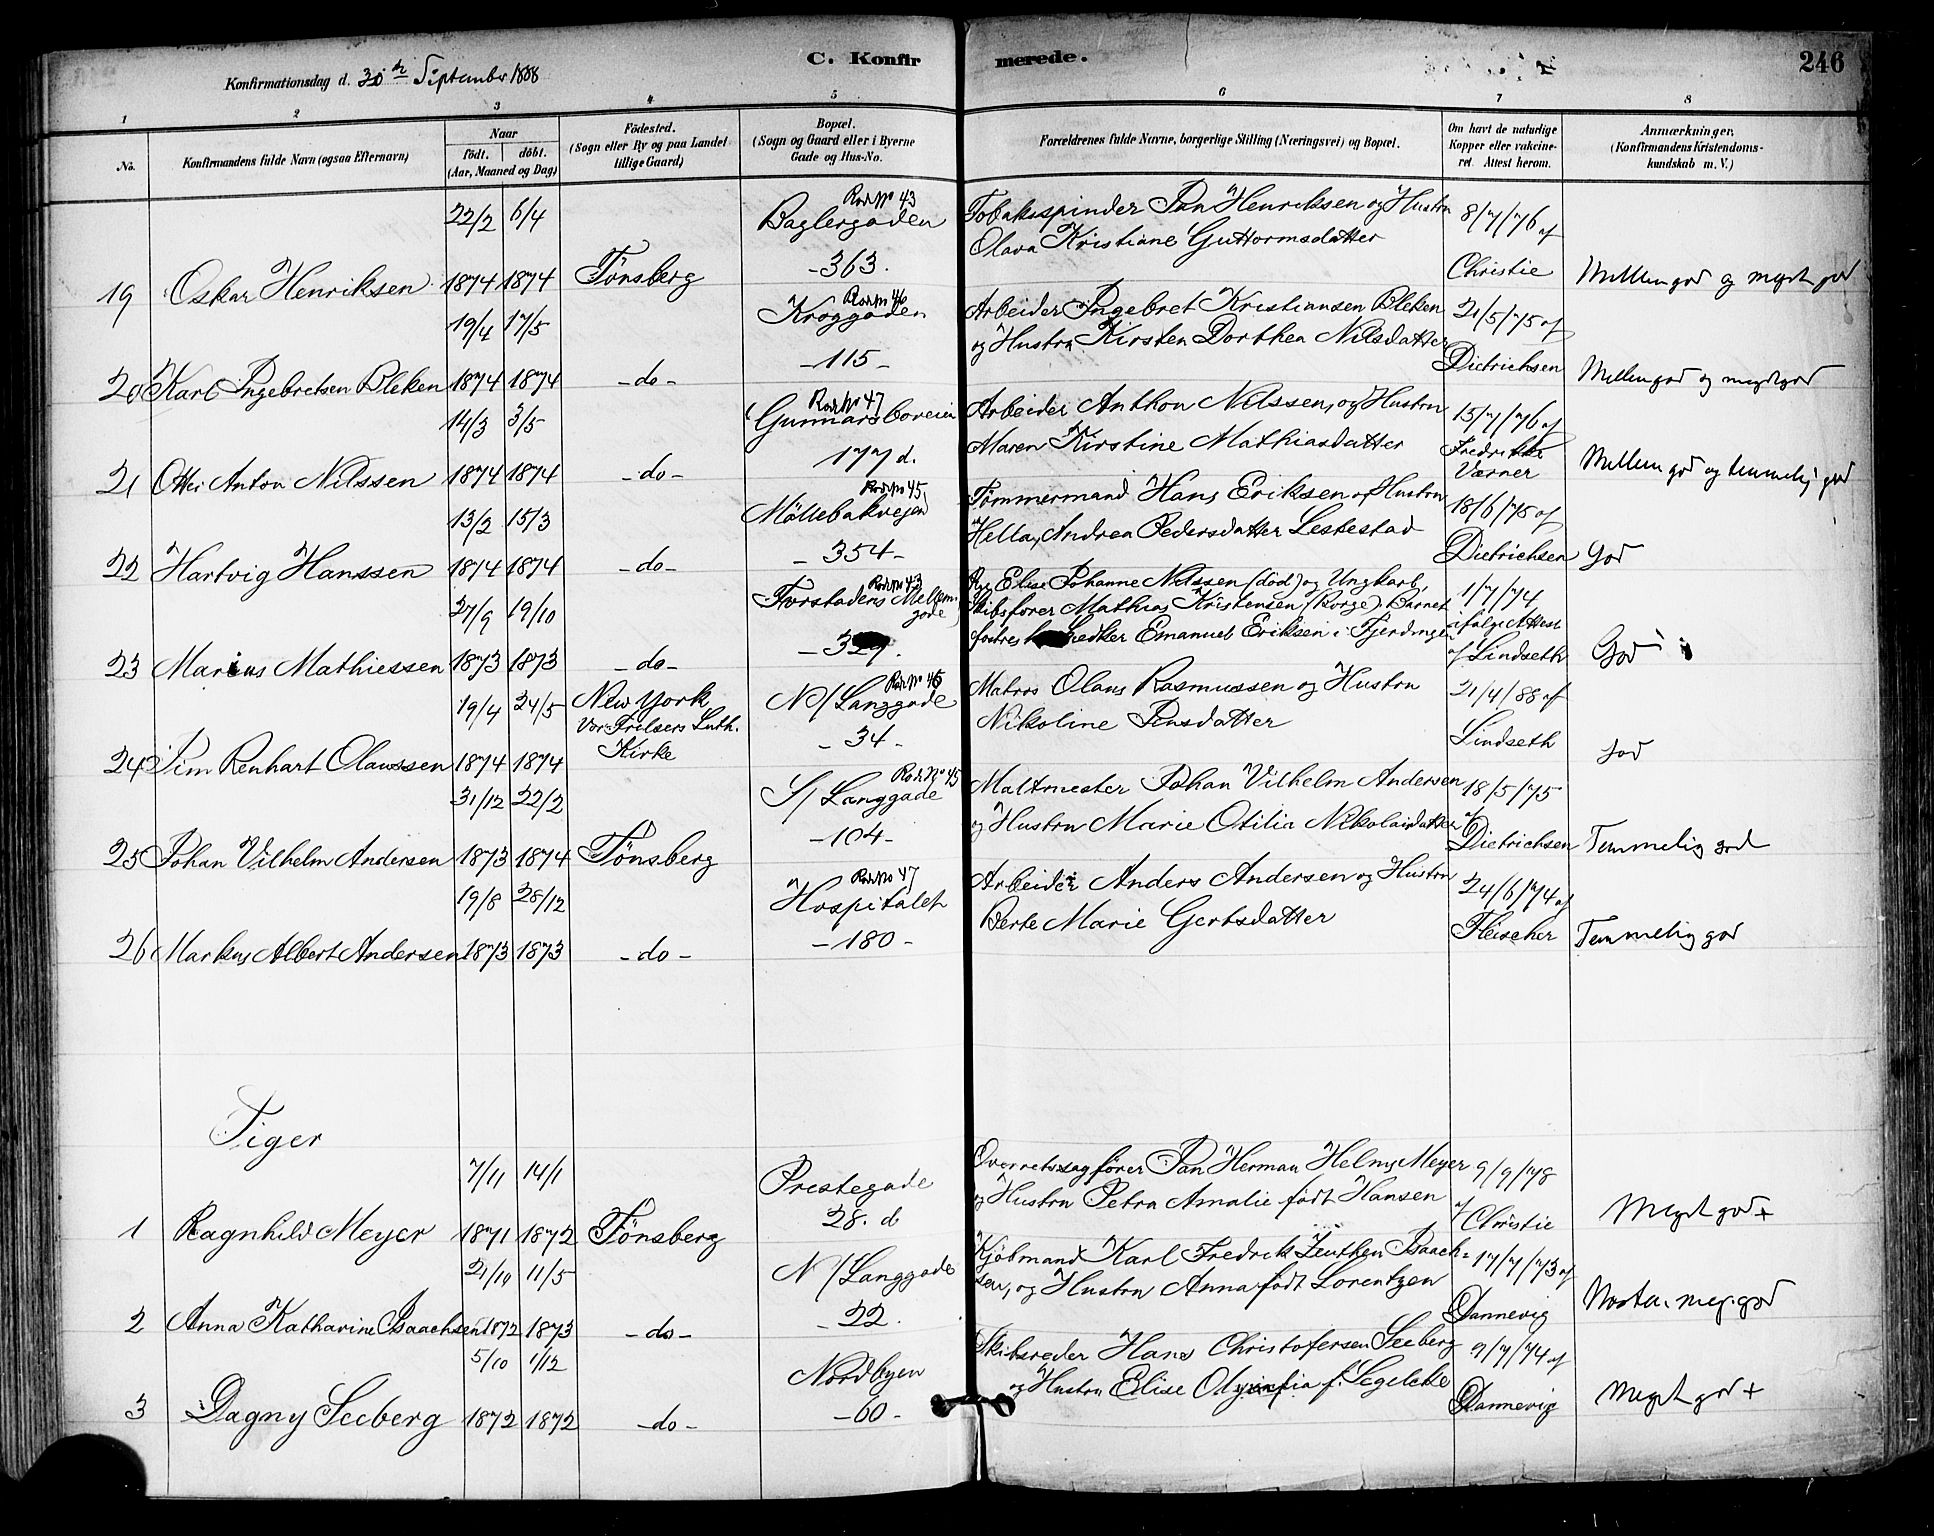 C. Konfirmerede.
246
Konfirmationsdag d. 30te September 1888
1 2 3 4 5 6 7 8
No.
Konfirmandens fulde Navn (ogsaa Efternavn)
Naar
födt. döbt.
(Aar, Maaned og Dag)
Födested.
(Sogn eller By og paa Landet
tillige Gaard)
Bopæl.
(Sogn og Gaard eller i Byerne
Gade og Hus-No.
Forældrenes fulde Navne, borgerlige Stilling (Næringsvei) og Bopæl.
Om havt de naturlige
Kopper eller vakcine-
ret. Attest herom.
Anmærkninger.
(Konfirmandens Kristendoms-
kundskab m. V.)
22/2 6/4 Rode No 43 Baglergaden Tobaksspinder Jan Henriksen og Hustru 8/7/76 af
Olava Kristiane Guttormsdatter
19 Oskar Henriksen 1874 1874 Tönsberg -363. Christie Mellem god og meget god
19/4 17/5 Rode No 46 Kroggaden Arbeider Ingebret Kristiansen Bleken 21/5/75 af
og Hustru Kirsten Dorthea Nilsdatter
20 Karl Ingebretsen Bleken 1874 1874 -do- -115- Dietrichsen Mellemgod og megetgod
14/3 3/5 Rode No 47 Gunnarsboveien Arbeider Anthon Nilssen, og Hustru 15/7/76 af
Maren Kirstine Mathiasdatter Fredrikke
21 Otto Anton Nilssen 1874 1874 -do- 177 d. Værner Mellem god og temmelig god
13/2 15/3 Rode No 45 Möllebakvejen Tömmermand Hans Eriksen og Hustru 18/6/75 af
Hella Andrea Pedersdatter Leskestad
22 Hartvig Hanssen 1874 1874 -do- -354- Dietrichsen God
27/9 19/10 Rode No 43 Forstadens Mellem- Pige Elise Johanne Nilssen (död) og Ungkarl, 1/7/74
gade Skibsförer Mathias Kristensen (Borge). Barnet ifölge Attest
fostres Snedker Emanuel Eriksen i Fjerdingen
23 Marius Mathiessen 1873 1873 -do- af Lindseth God
19/4 24/5 New York Rode No 45 N/Langgade Matros Olaus Rasmussen og Hustru 21/4/88 af
Vor Frelsers Luth. Nikoline Jensdatter
24 Jim Renhart Olaussen 1874 1874 Kirke -34- Lindseth god
31/12 22/2 Rode No 45 S/Langgade Maltmester Johan Vilhelm Andersen 18/5/75
og Hustru Marie Otilia Nikolaisdatter af
25 Johan Vilhelm Andersen 1873 1874 Tönsberg -104- Dietrichsen Temmelig god
19/8 28/12 Rode No 47 Hospitalet Arbeider Anders Andersen og Hustru 24/6/74 af
Berte Marie Gertsdatter
26 Markus Albert Andersen 1873 1873 -do- -180- Fleischer Temmelig god
Piger
7/11 14/1 Prestegade Overretssagförer Jan Herman Helms Meyer 9/9/78
og Hustru Petra Amalie födt Hansen
1 Ragnhild Meyer 1871 1872 Tönsberg 28. d af Christie Meget god +
21/10 11/5 N/Langgade Kjöbmand Karl Fredrik Zeuthen Isaach- 17/7/73 af
sen, og Hustru Anna födt Lorentzen
2 Anna Katharine Isaachsen 1872 1873 -do- -22. Dannevig Næsten meg. god
5/10 1/12 Nordbyen Skibsreder Hans Christofersen Seeberg 9/7/74 af
og Hustru Elise Olympia f. Segelcke
3 Dagny Seeberg 1872 1872 -do- -60- Dannevig Meget god +